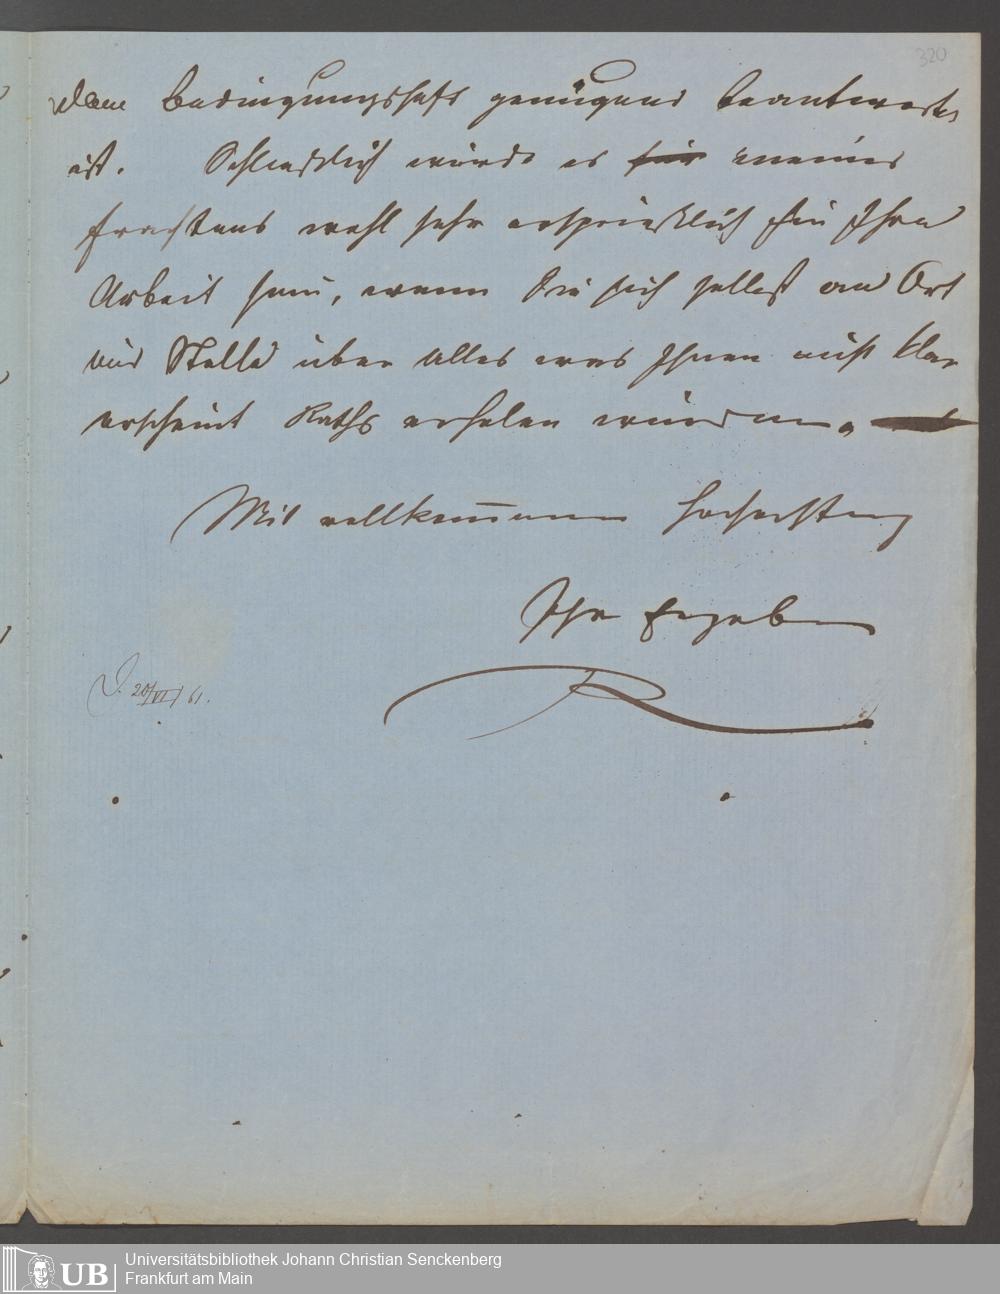 320
dem bedingungshaft genügend beantwortet
ist. Schließlich würde es für meines
Erachtens wohl sehr ersprießlich für Ihre
Arbeit sein, wenn Sie sich selbst an Ort
und Stelle über Alles was Ihnen nicht klar
erscheint Raths erholen würden.
Mit vollkommener Hochachtung
Ihr Ergebener
R
D. 20/VI/61.
Universitätsbibliothek Johann Christian Senckenberg
Frankfurt am Main
UB